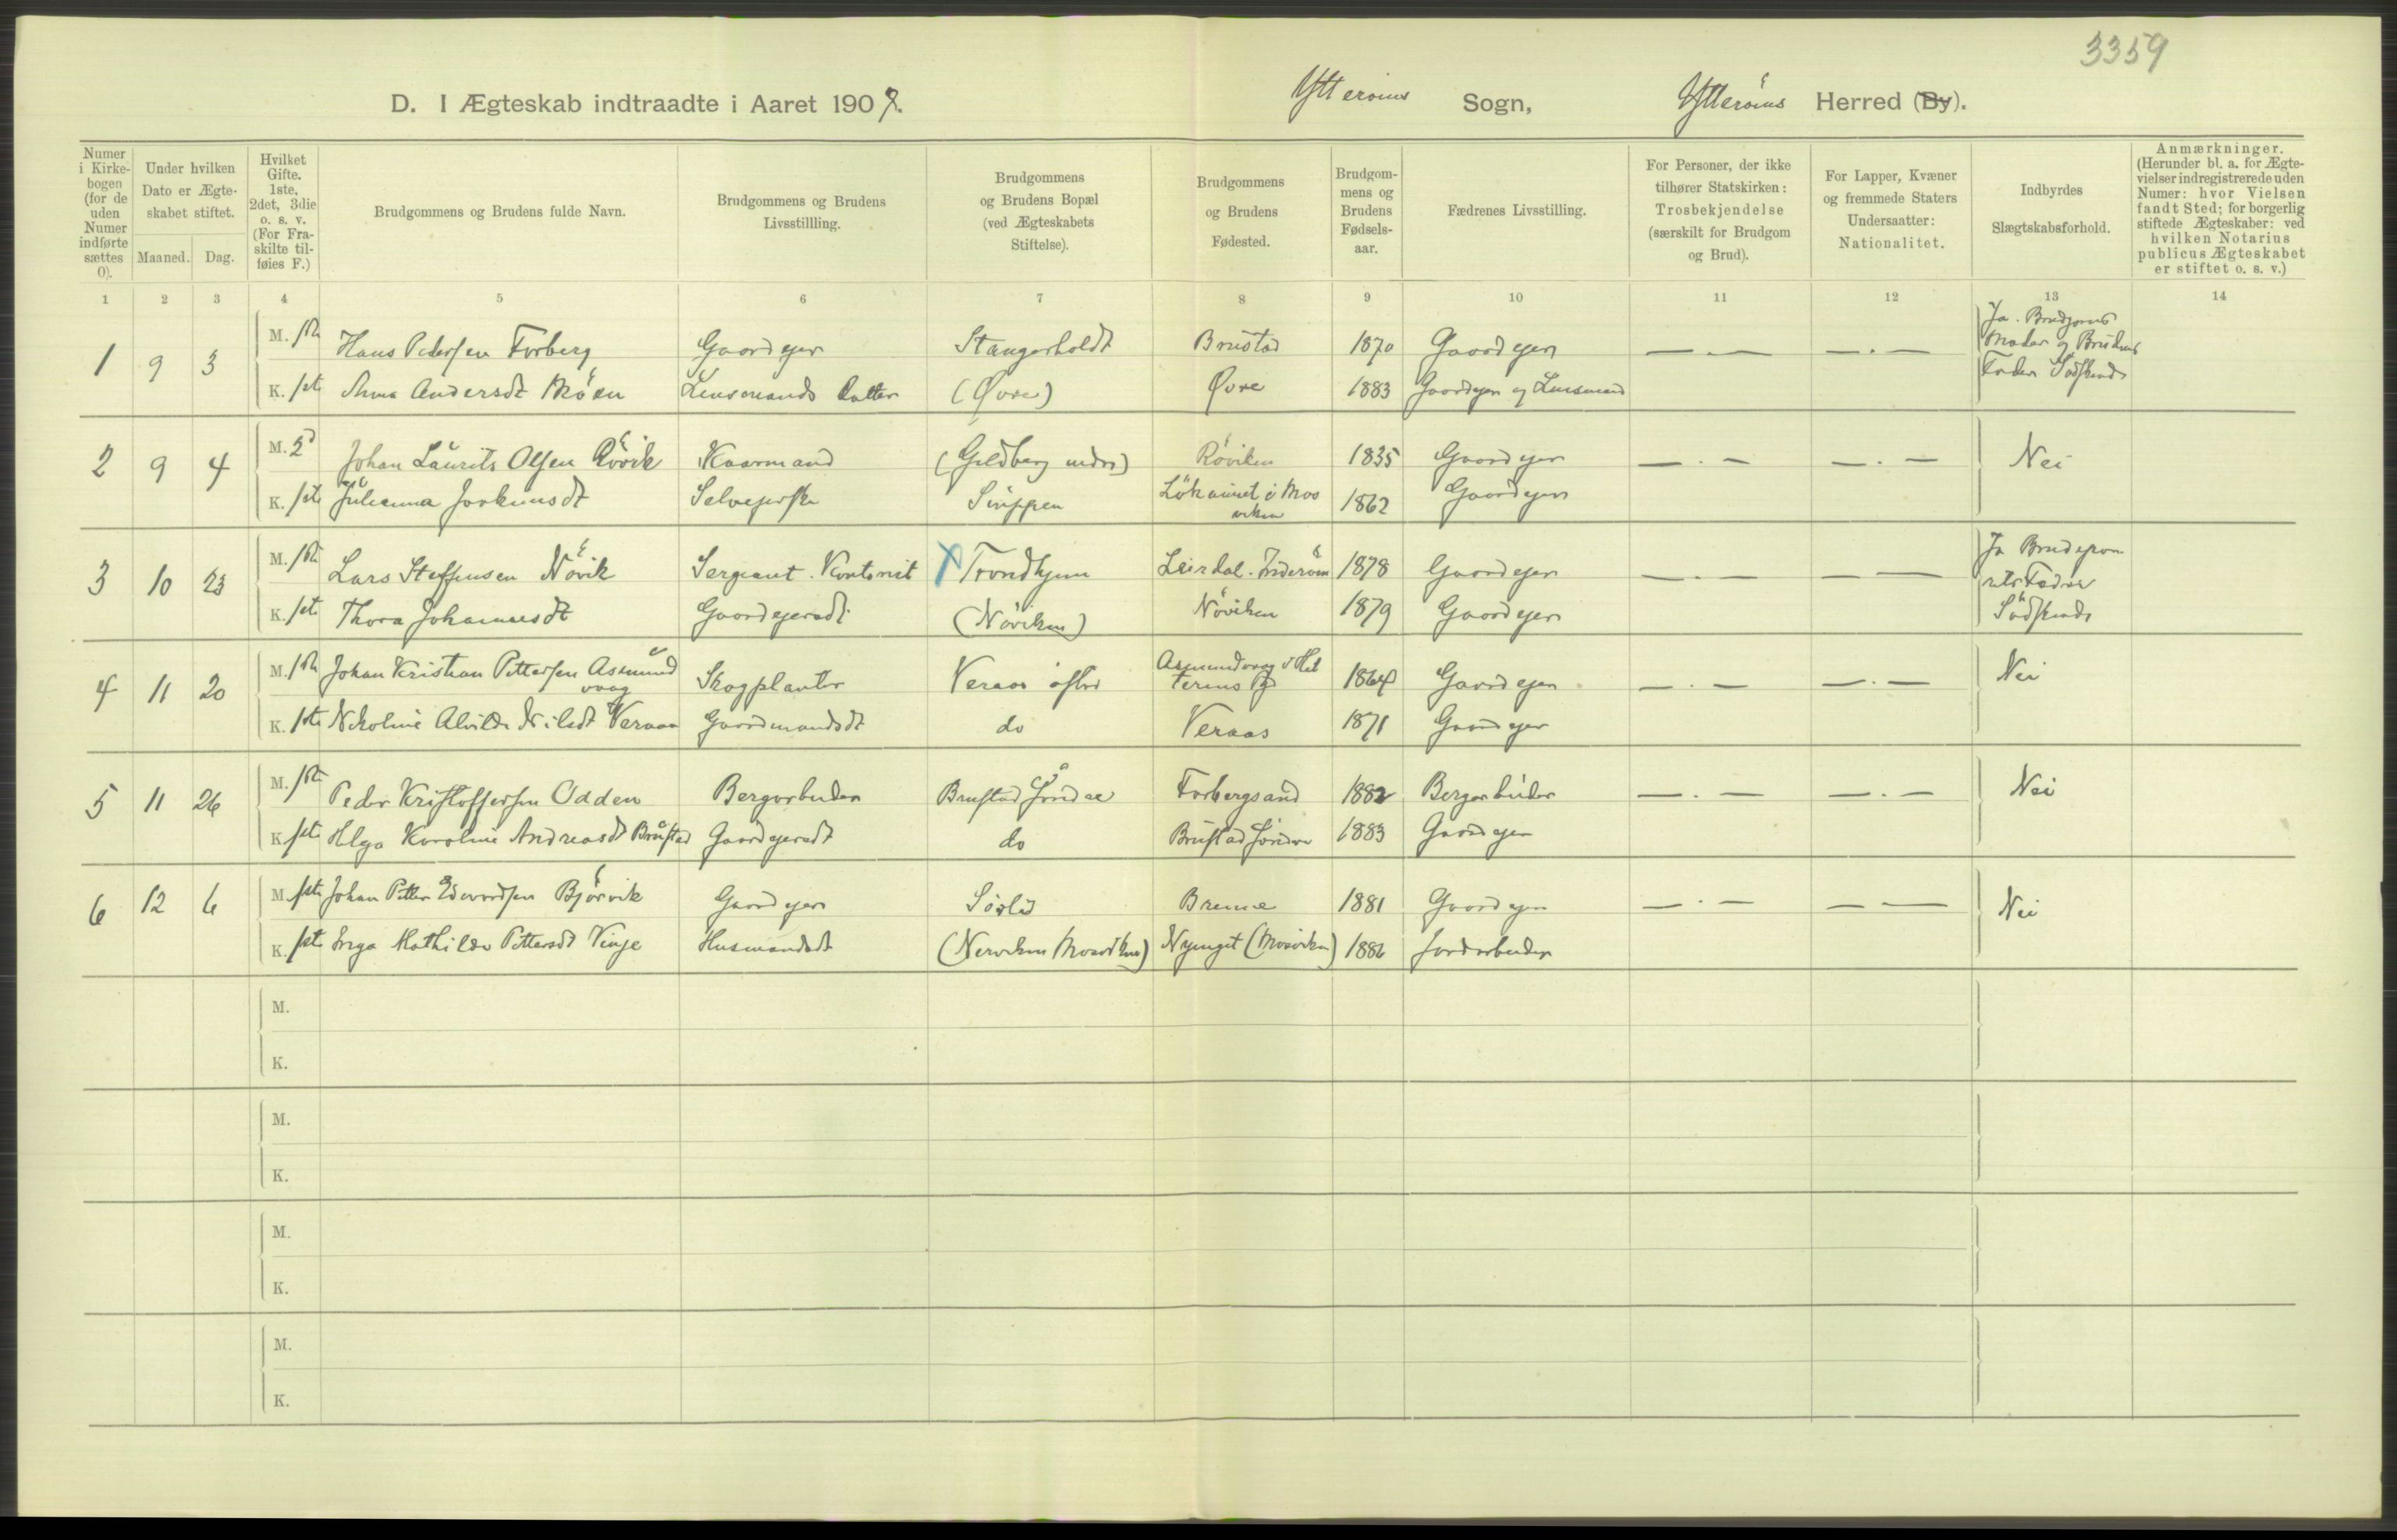 3359
D. I Ægteskab indtraadte i Aaret 1907. Ytterøens Sogn, Ytterøens Herred (By).
Numer i Kirke-bogen (for de uden Numer indførte sættes 0).
Under hvilken Dato er Ægte-skabet stiftet.
Maaned. Dag.
Hvilket Gifte. 1ste, 2det, 3die o. s. v. (For Fra-skilte til-føies F.)
Brudgommens og Brudens fulde Navn.
Brudgommens og Brudens Livsstillling.
Brudgommens og Brudens Bopæl (ved Ægteskabets Stiftelse).
Brudgommens og Brudens Fødested.
Brudgom-mens og Brudens Fødsels-aar.
Fædrenes Livsstilling.
For Personer, der ikke tilhører Statskirken: Trosbekjendelse (særskilt for Brudgom og Brud).
For Lapper, Kvæner og fremmede Staters Undersaatter: Nationalitet.
Indbyrdes Slægtskabsforhold.
Anmærkninger. (Herunder bl. a. for Ægte-vielser indregistrerede uden Numer: hvor Vielsen fandt Sted; for borgerlig stiftede Ægteskaber: ved hvilken Notarius publicus Ægteskabet er stiftet o. s. v.)
1 2 3 4 5 6 7 8 9 10 11 12 13 14
1 9 3 M. 1ste Hans Pedersen Forberg Gaardejer Stangerholdt Brustad 1870 Gaardejer — . — — . — Ja. Brudgoms Moder og Brudens Fader Södskend
K. 1ste Anna Andersdt Möen Lensmands Datter (Øvre) Øvre 1883 Gaardejer og Lensmand
2 9 4 M. 2d Johan Laurits Olsen Rövik Kaarmand (Gjldberg nedre) Röviken 1835 Gaardejer — . — — . — Nei
K. 1ste Julianna Joakimsdt Selvejerske Sivppen i Mosviken 1862 Gaardejer
3 10 23 M. 1ste Lars Steffensen Növik Sergeant. Kontorist X Trondhjem Leirdal. Inderöen 1878 Gaardejer — . — — — Ja Brudeparrets Fædre Södskend
K. 1ste Thora Johannesdt Gaardejersdt (Növiken) Növiken 1879 Gaardejer
4 11 20 M. 1ste Johan Kristian Pettersen Asmundvaag Skogplanter Veraas östre Asmundvaag i Hitterens Pg 1864 Gaardejer — . — — . — Nei
K. 1ste Nikoline Alvilde Nilsdt Veraas Gaardmandsdt do Veraas 1871 Gaardejer
5 11 26 M. 1ste Peder Kristoffersen Odden Bergarbeider Brustad söndre Forbergsand 1882 Bergarbeider — . — — . — Nei
K. 1ste Helga Karoline Andreasdt Brustad Gaardejersdt do Brustad söndre 1883 Gaardejer
6 12 6 M. 1ste Johan Petter Edvardsen Bjørvik Gaardejer Sørlid Brenne 1881 Gaardejer — . — — — Nei
K. 1ste Inga Mathilde Pettersdt Vinje Husmandsdt (Nerviken Mosviken) Nyenget (Mosviken) 1886 Jordarbeider
M.
K.
M.
K.
M.
K.
M.
K.